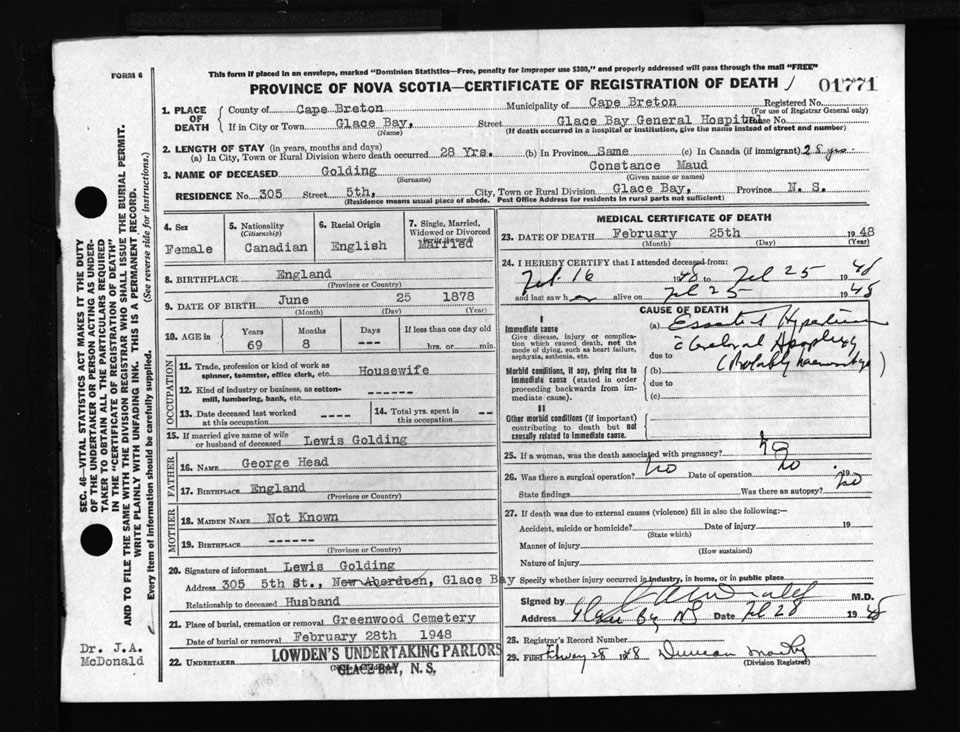 FORM 6
This form if placed in an envelope, marked "Dominion Statistics—Free, penalty for improper use $300," and properly addressed will pass through the mail "FREE"
PROVINCE OF NOVA SCOTIA—CERTIFICATE OF REGISTRATION OF DEATH
01771
1. PLACE OF DEATH
County of Cape Breton Municipality of Cape Breton Registered No.
(For use of Registrar General only)
If in City or Town Glace Bay, Street Glace Bay General Hospital House No.
(Name) (If death occurred in a hospital or institution, give the name instead of street and number)
2. LENGTH OF STAY (in years, months and days)
(a) In City, Town or Rural Division where death occurred 28 Yrs. (b) In Province Same (c) In Canada (if immigrant) 28 yrs
3. NAME OF DECEASED Golding Constance Maud
(Surname) (Given name or names)
RESIDENCE No. 305 Street 5th, City, Town or Rural Division Glace Bay, Province N. S.
(Residence means usual place of abode. Post Office Address for residents in rural parts not sufficient)
4. Sex Female
5. Nationality (Citizenship) Canadian
6. Racial Origin English
7. Single, Married, Widowed or Divorced (write the word) Married
8. BIRTHPLACE England
(Province or Country)
9. DATE OF BIRTH June 25 1878
(Month) (Day) (Year)
10. AGE in Years 69 Months 8 Days --- If less than one day old hrs. or min.
OCCUPATION
11. Trade, profession or kind of work as spinner, teamster, office clerk, etc. Housewife
12. Kind of industry or business, as cotton-mill, lumbering, bank, etc. ------
13. Date deceased last worked at this occupation ----
14. Total yrs. spent in this occupation --
15. If married give name of wife or husband of deceased Lewis Golding
FATHER
16. NAME George Head
17. BIRTHPLACE England
MOTHER
18. MAIDEN NAME Not Known
19. BIRTHPLACE ------
(Province or Country)
20. Signature of informant Lewis Golding
Address 305 5th St., New Aberdeen, Glace Bay
Relationship to deceased Husband
21. Place of burial, cremation or removal Greenwood Cemetery
Date of burial or removal February 28th 1948
22. UNDERTAKER LOWDEN'S UNDERTAKING PARLORS
GLACE BAY, N. S.
MEDICAL CERTIFICATE OF DEATH
23. DATE OF DEATH February 25th 1948
(Month) (Day) (Year)
24. I HEREBY CERTIFY that I attended deceased from:
Feb. 16 1948 to Feb 25 1948
and last saw her alive on Feb 25 1948
CAUSE OF DEATH
I
Immediate cause
Give disease, injury or complication which caused death, not the mode of dying, such as heart failure, asphyxia, asthenia, etc.
(a) Essential Hypertension
c̄ Cerebral Apoplexy
due to
(Probably haemorrhage)
Morbid conditions, if any, giving rise to immediate cause (stated in order proceeding backwards from immediate cause).
(b)
due to
(c)
II
Other morbid conditions (if important) contributing to death but not causally related to immediate cause.
25. If a woman, was the death associated with pregnancy? No
26. Was there a surgical operation? No Date of operation No 19
State findings Was there an autopsy? No
27. If death was due to external causes (violence) fill in also the following:—
Accident, suicide or homicide? Date of injury 19
(State which)
Manner of injury
(How sustained)
Nature of injury
Specify whether injury occurred in industry, in home, or in public place
Signed by M.D.
Address Glace Bay NS Date Feb 28 1948
28. Registrar's Record Number
29. Filed 28 1948 Duncan
(Division Registrar)
SEC. 46—VITAL STATISTICS ACT MAKES IT THE DUTY
OF THE UNDERTAKER OR PERSON ACTING AS UNDER-
TAKER TO OBTAIN ALL THE PARTICULARS REQUIRED
IN THE "CERTIFICATE OF REGISTRATION OF DEATH"
AND TO FILE THE SAME WITH THE DIVISION REGISTRAR WHO SHALL ISSUE THE BURIAL PERMIT.
WRITE PLAINLY WITH UNFADING INK. THIS IS A PERMANENT RECORD.
Every item of information should be carefully supplied. (See reverse side for instructions.)
Dr. J.A.
McDonald